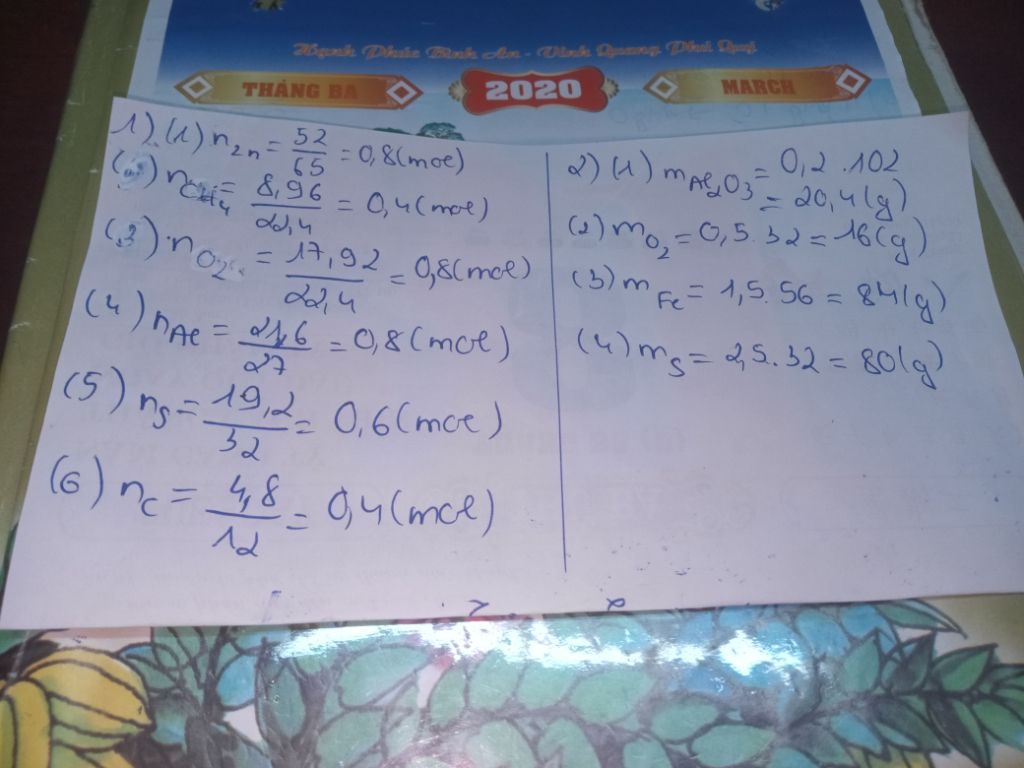 Hạnh Phúc Bình An - Vinh Quang Phú Quý
THÁNG BA 2020 MARCH
1) (1) nZn = 52/65 = 0,8 (mol)
(2) nCH4 = 8,96/22,4 = 0,4 (mol)
(3) nO2 = 17,92/22,4 = 0,8 (mol)
(4) nAl = 21,6/27 = 0,8 (mol)
(5) nS = 19,2/32 = 0,6 (mol)
(6) nC = 4,8/12 = 0,4 (mol)
2) (1) mAl2O3 = 0,2 . 102
= 20,4 (g)
(2) mO2 = 0,5 . 32 = 16 (g)
(3) mFe = 1,5 . 56 = 84 (g)
(4) mS = 2,5 . 32 = 80 (g)